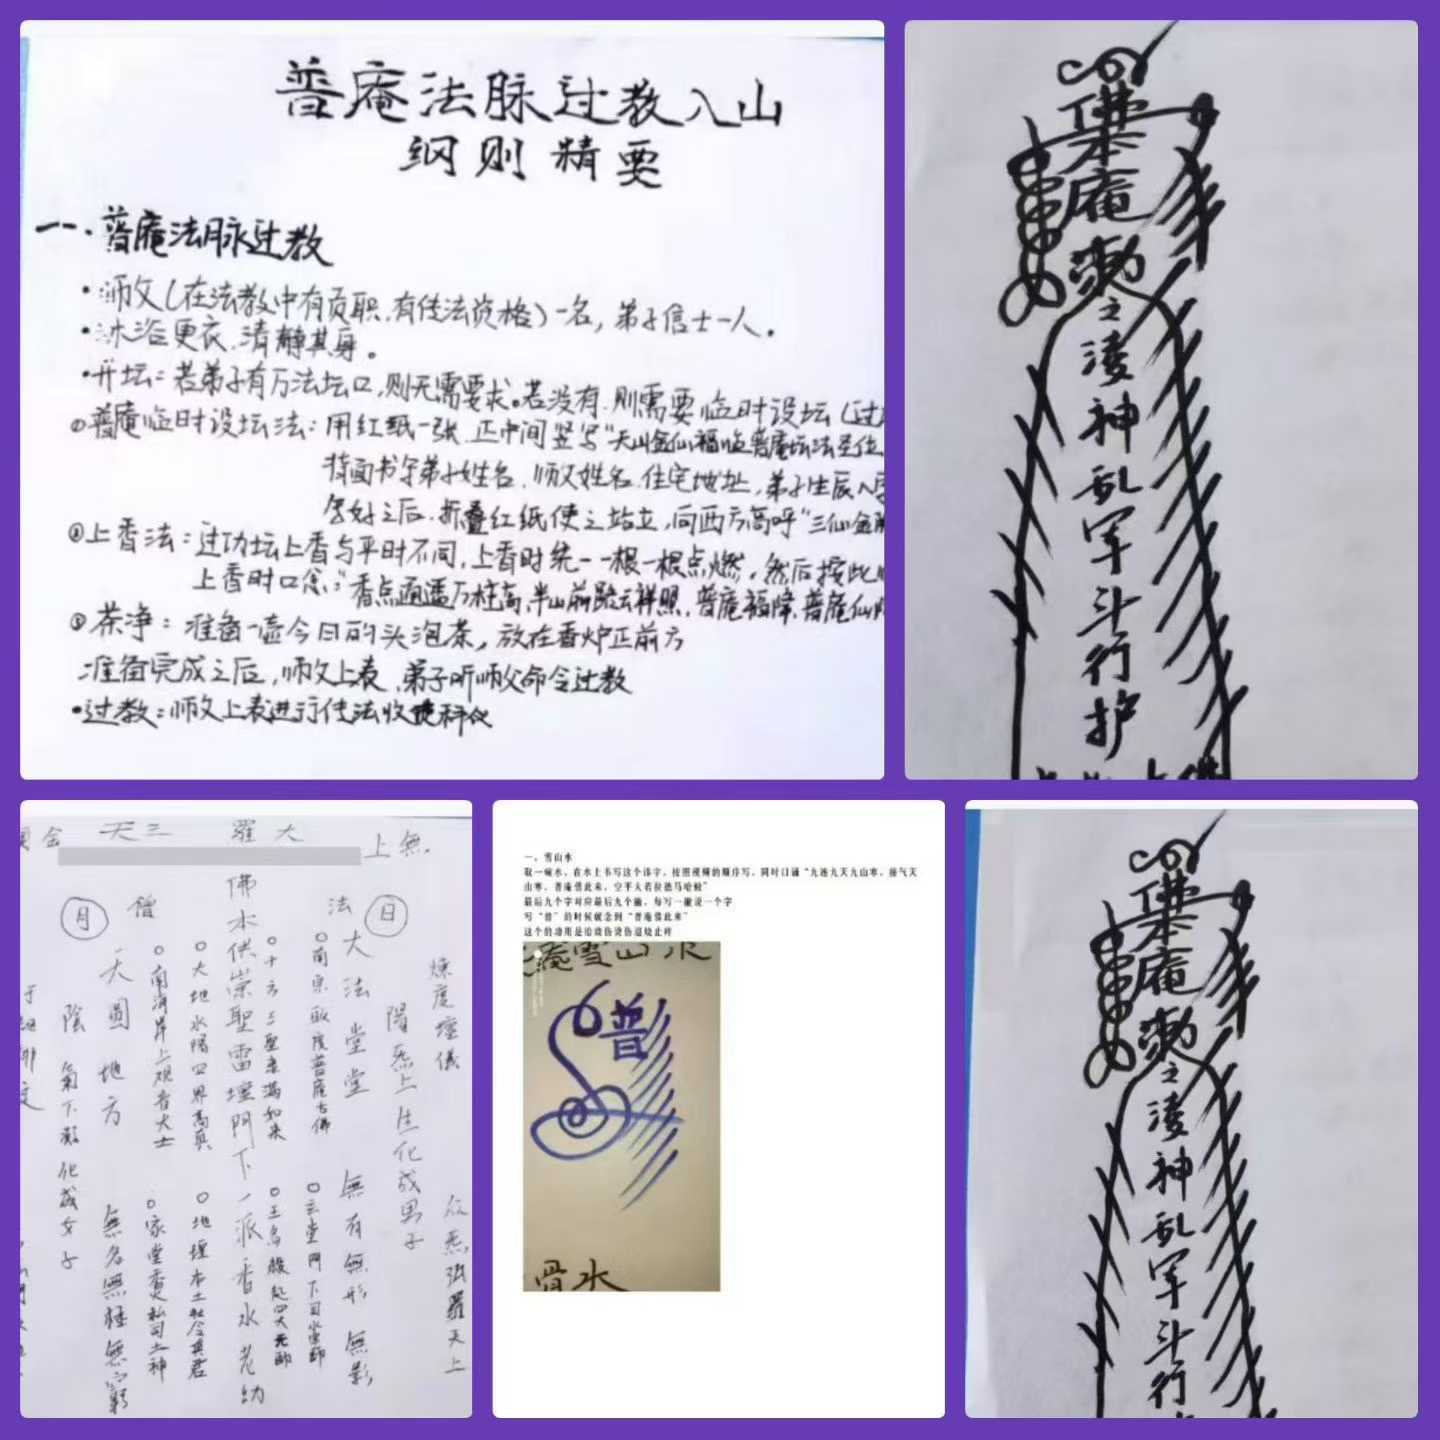 普庵法脉过教入山
纲则精要
一.普庵法脉过教
·师父(在法教中有贡职.有传法资格)一名，弟子信士一人。
·沐浴更衣.清静其身。
·开坛：若弟子有万法坛口,则无需要求。若没有.则需要临时设坛(过
①普庵临时设坛法：用红纸一张.正中间竖写“天山金仙福临普庵坛法圣位
背面书写弟子姓名.师父姓名.住宅地址，弟子生辰八字
写好之后.折叠红纸使之站立,向西方高呼“三仙金
②上香法：过功坛上香与平时不同,上香时统一一根一根点燃，然后按此
上香时口念：“香点通遥万柱高,半山前路云祥照,普庵福降.普庵仙
③茶净：准备一壶今日的头泡茶，放在香炉正前方
准备完成之后,师父上表.弟子听师父命令过教
·过教：师父上表进行传法收魂科仪
佛
本
庵
勅
之
凌
神
乱
军
斗
行
护
無上
大羅
三天
會
煉度壇儀
众炁弥羅天上
日
陽炁上生化成男子
法
大法堂堂
無有無形無影
南泉教度普庵古佛
云堂門下司坐郎
十方三聖圓滿如来
佛本供崇聖雷壇門下一派香水老幼
大地水陽四界高真
地壇本土社令真君
南海岸上观音大士
家堂香火私司土神
僧
天圆地方
無名無極無窮
月
陰氣下凝化成女子
一、雪山水
取一碗水，在水上书写这个讳字，按照视频的顺序写，同时口诵“九池九天九山寒，接气天
山寒，普庵借此来，空平大若拉德马哈梭”
最后九个字对应最后九个撇，每写一撇说一个字
写“普”的时候就念到“普庵借此来”
这个的功用是治烧伤烫伤退烧止疼
庵雪山水
普
骨水
佛
本
庵
勅
之
凌
神
乱
军
斗
行